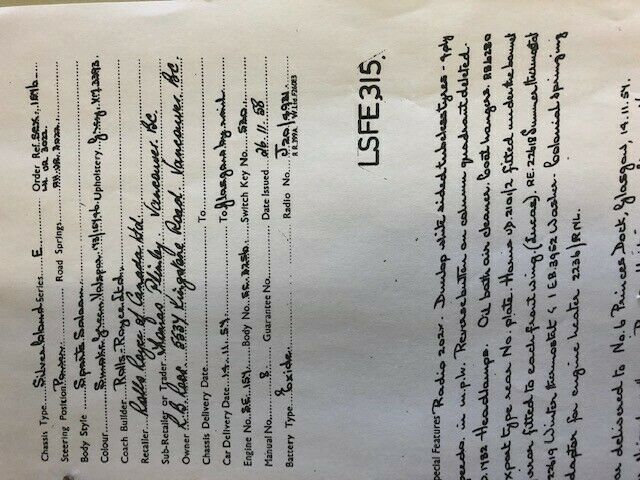 Chassis Type Silver Cloud Series E Order Ref. SCX. 1181b
Steering Position Road Springs
Body Style Sports Saloon
Colour Smoke Green Upholstery Grey VM. 3393
Coach Builder Rolls-Royce Ltd.
Retailer Rolls Royce of Canada Ltd.
Sub-Retailer or Trader Thomas Plimley Vancouver BC.
Owner R. B. Ross Kingston Road. Vancouver. BC.
Chassis Delivery Date To
Car Delivery Date 14.11.59 To Glasgow by rail
Engine No. SE. 157 Body No. Switch Key No.
Manual No. Guarantee No. Date Issued
Battery Type Exide Radio No.
LSFE,315.
pecial Features Radio 202X. Dunlop white sided tubeless tyres - 4 ply
peeds in m.p.h. Reverse button on column quadrant deleted.
1982 Headlamps. Oil bath air cleaner. Coat hangers.
xport type rear No. plate. Horns fitted under the bonnet
fitted to each front wing (Lucas). RE.22618 Summer thermostat
22619 Winter thermostat & 1 EB.3952 washer. Colonial springing
daptor for engine heater 2236/RNL.
ar delivered to No. 6 Princes Dock, Glasgow, 14.11.59.